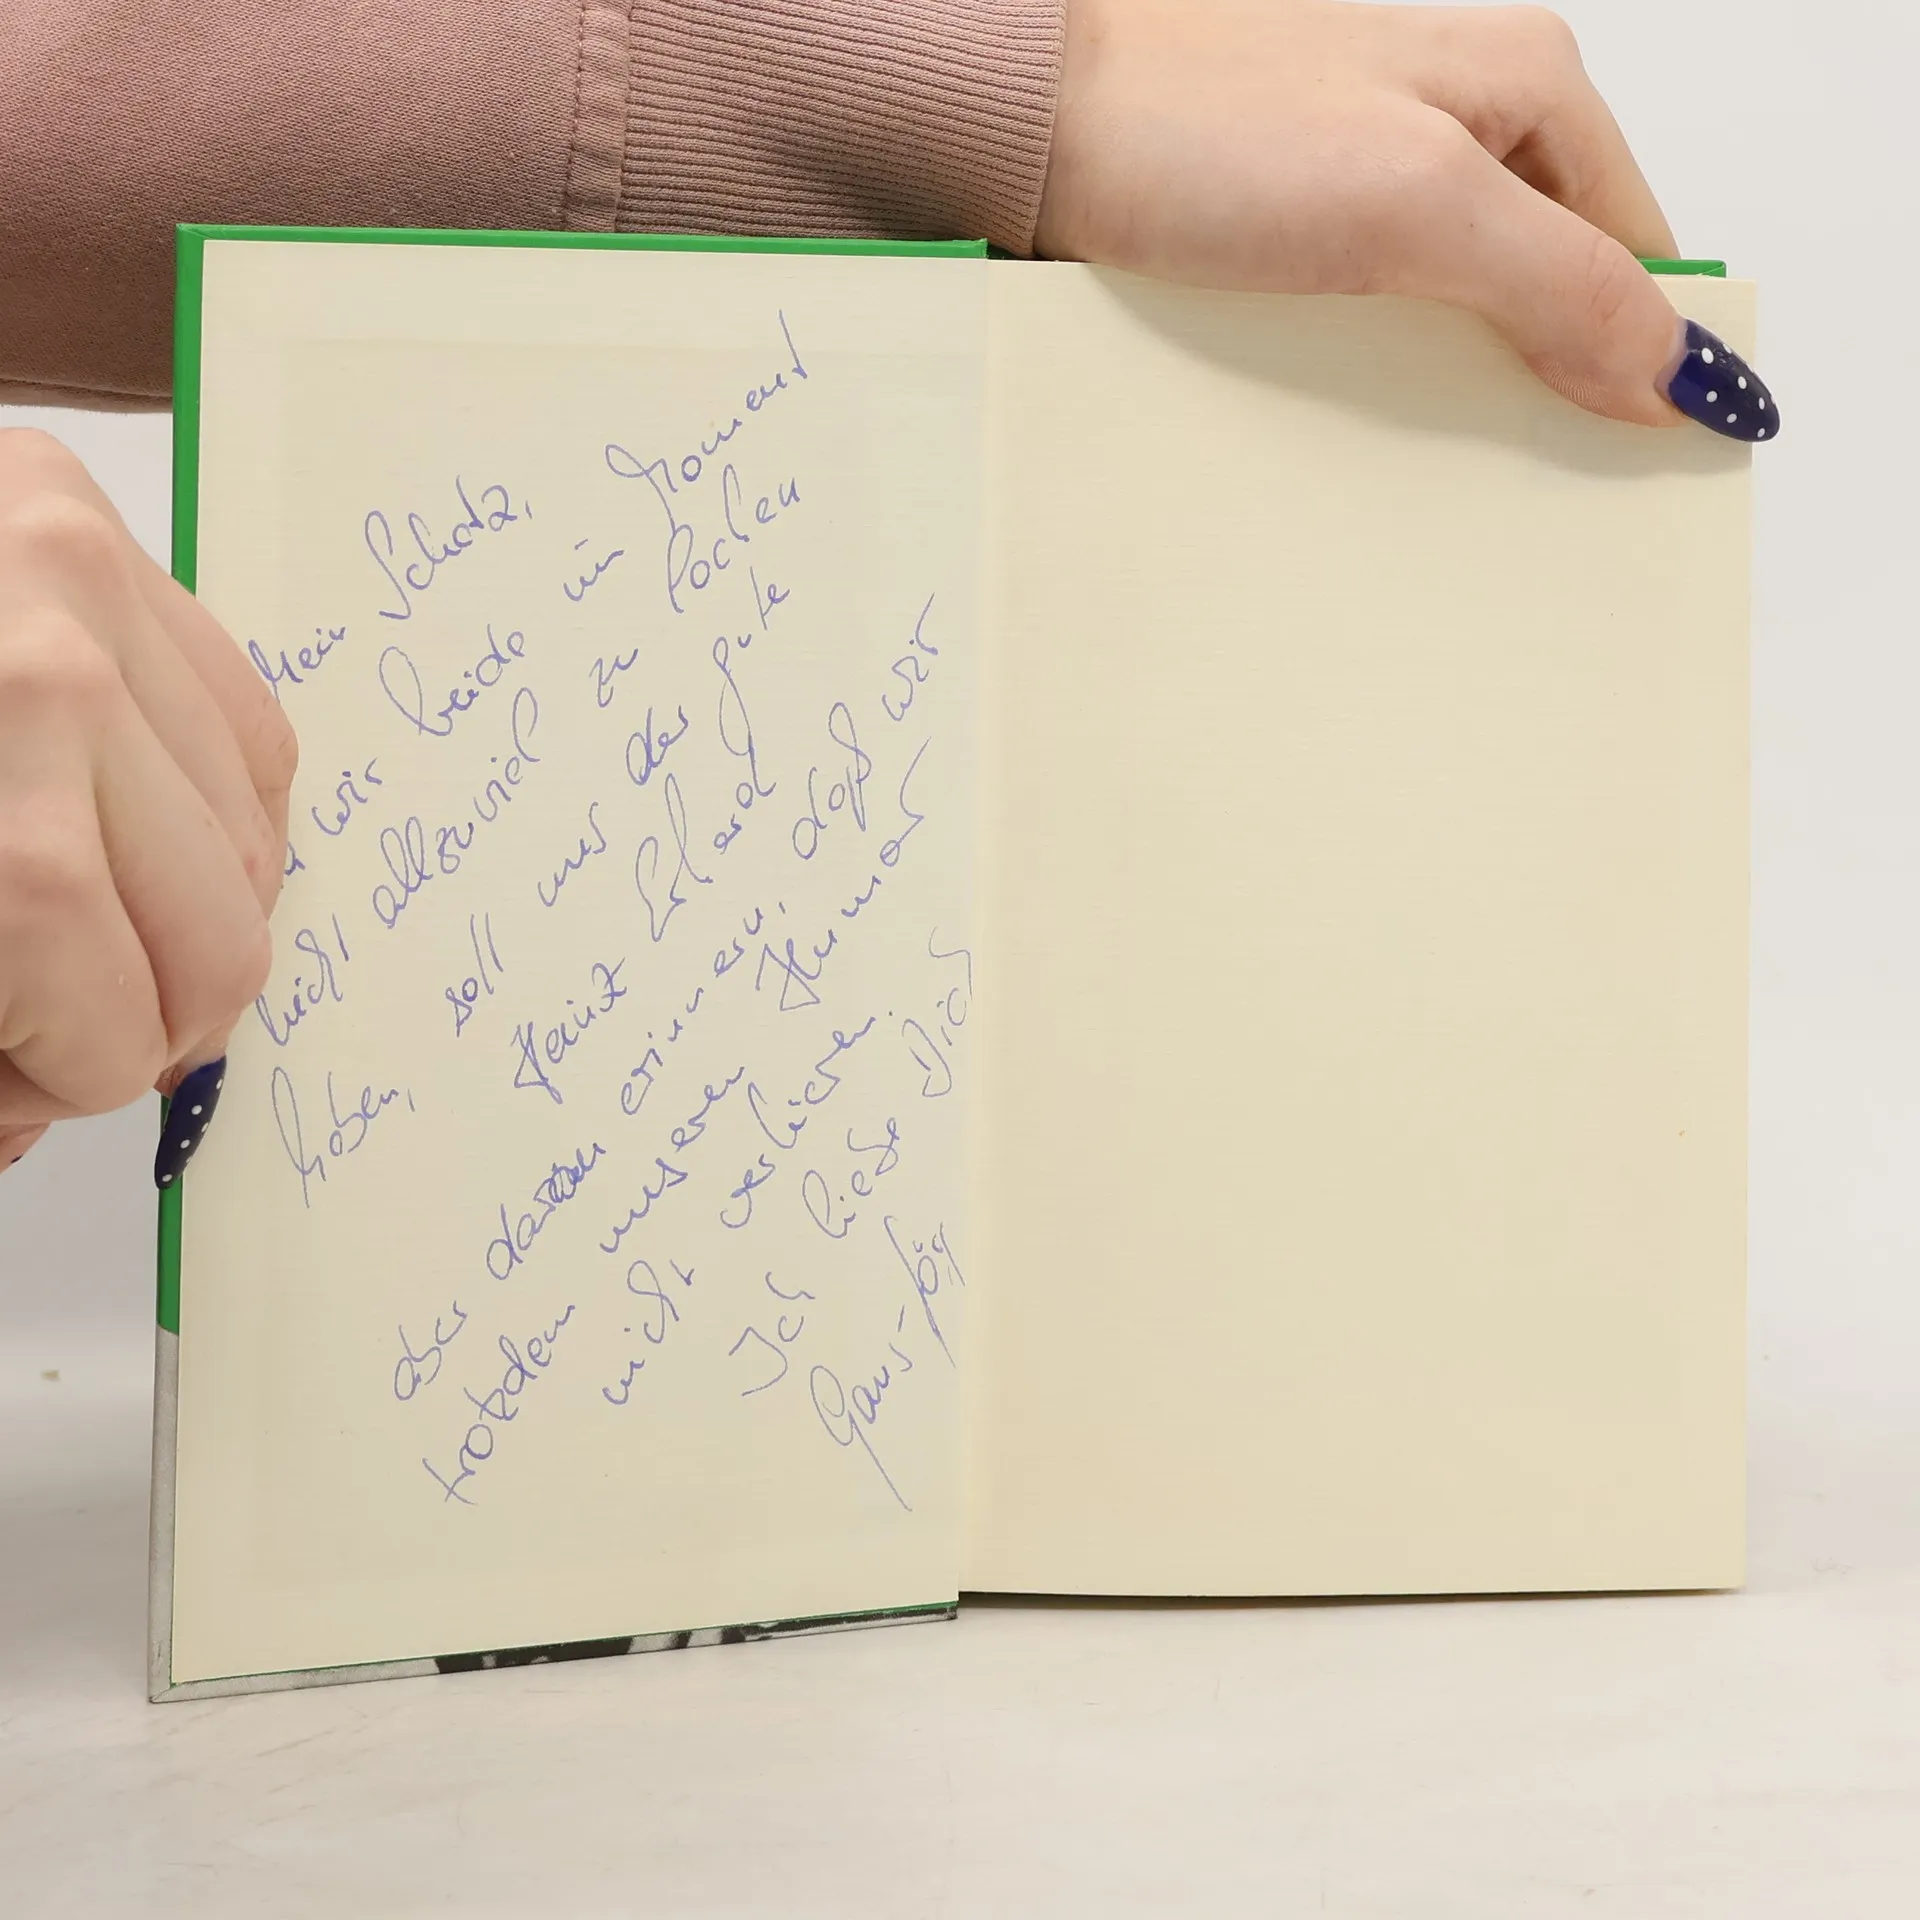 Mein Schatz,
wir beide im Moment
nicht allzuviel zu lachen
haben, soll uns der gute
Heinz Erhard
aber daran erinnern, daß wir
trotzdem unseren Humor
nicht verlieren.
Ich liebe Dich